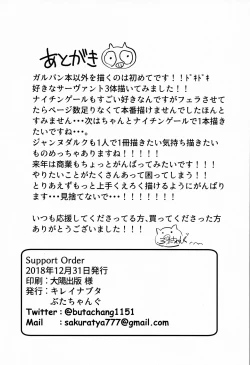 あとがき
ガルパン本以外を描くのは初めてです！！ﾄﾞｷﾄﾞｷ
好きなサーヴァント3体描いてみました！！
ナイチンゲールもすごい好きなんですがフェラさせて
たらページ数足りなくて本番描けませんでしたほんと
すみません・・・次はちゃんとナイチンゲールで1本描き
たいですね・・・。
ジャンヌダルクも1人で1冊描きたい気持ち描きたい
ものめっちゃありますね！！！！！
来年は商業もちょっとがんばってみたいです！！！
やりたいことがたくさんあって困ってしまう！！
とりあえずもっと上手くえろく描けるようにがんばり
ます・・・見捨てないで・・・！！！！！！！
いつも応援してくださってる方、買ってくださった方
ありがとうございました！！！
Support Order
2018年12月31日発行
印刷：大陽出版 様
発行：キレイナブタ
ぶたちゃんぐ
Twitter：@butachang1151
Mail：sakuratya777@gmail.com